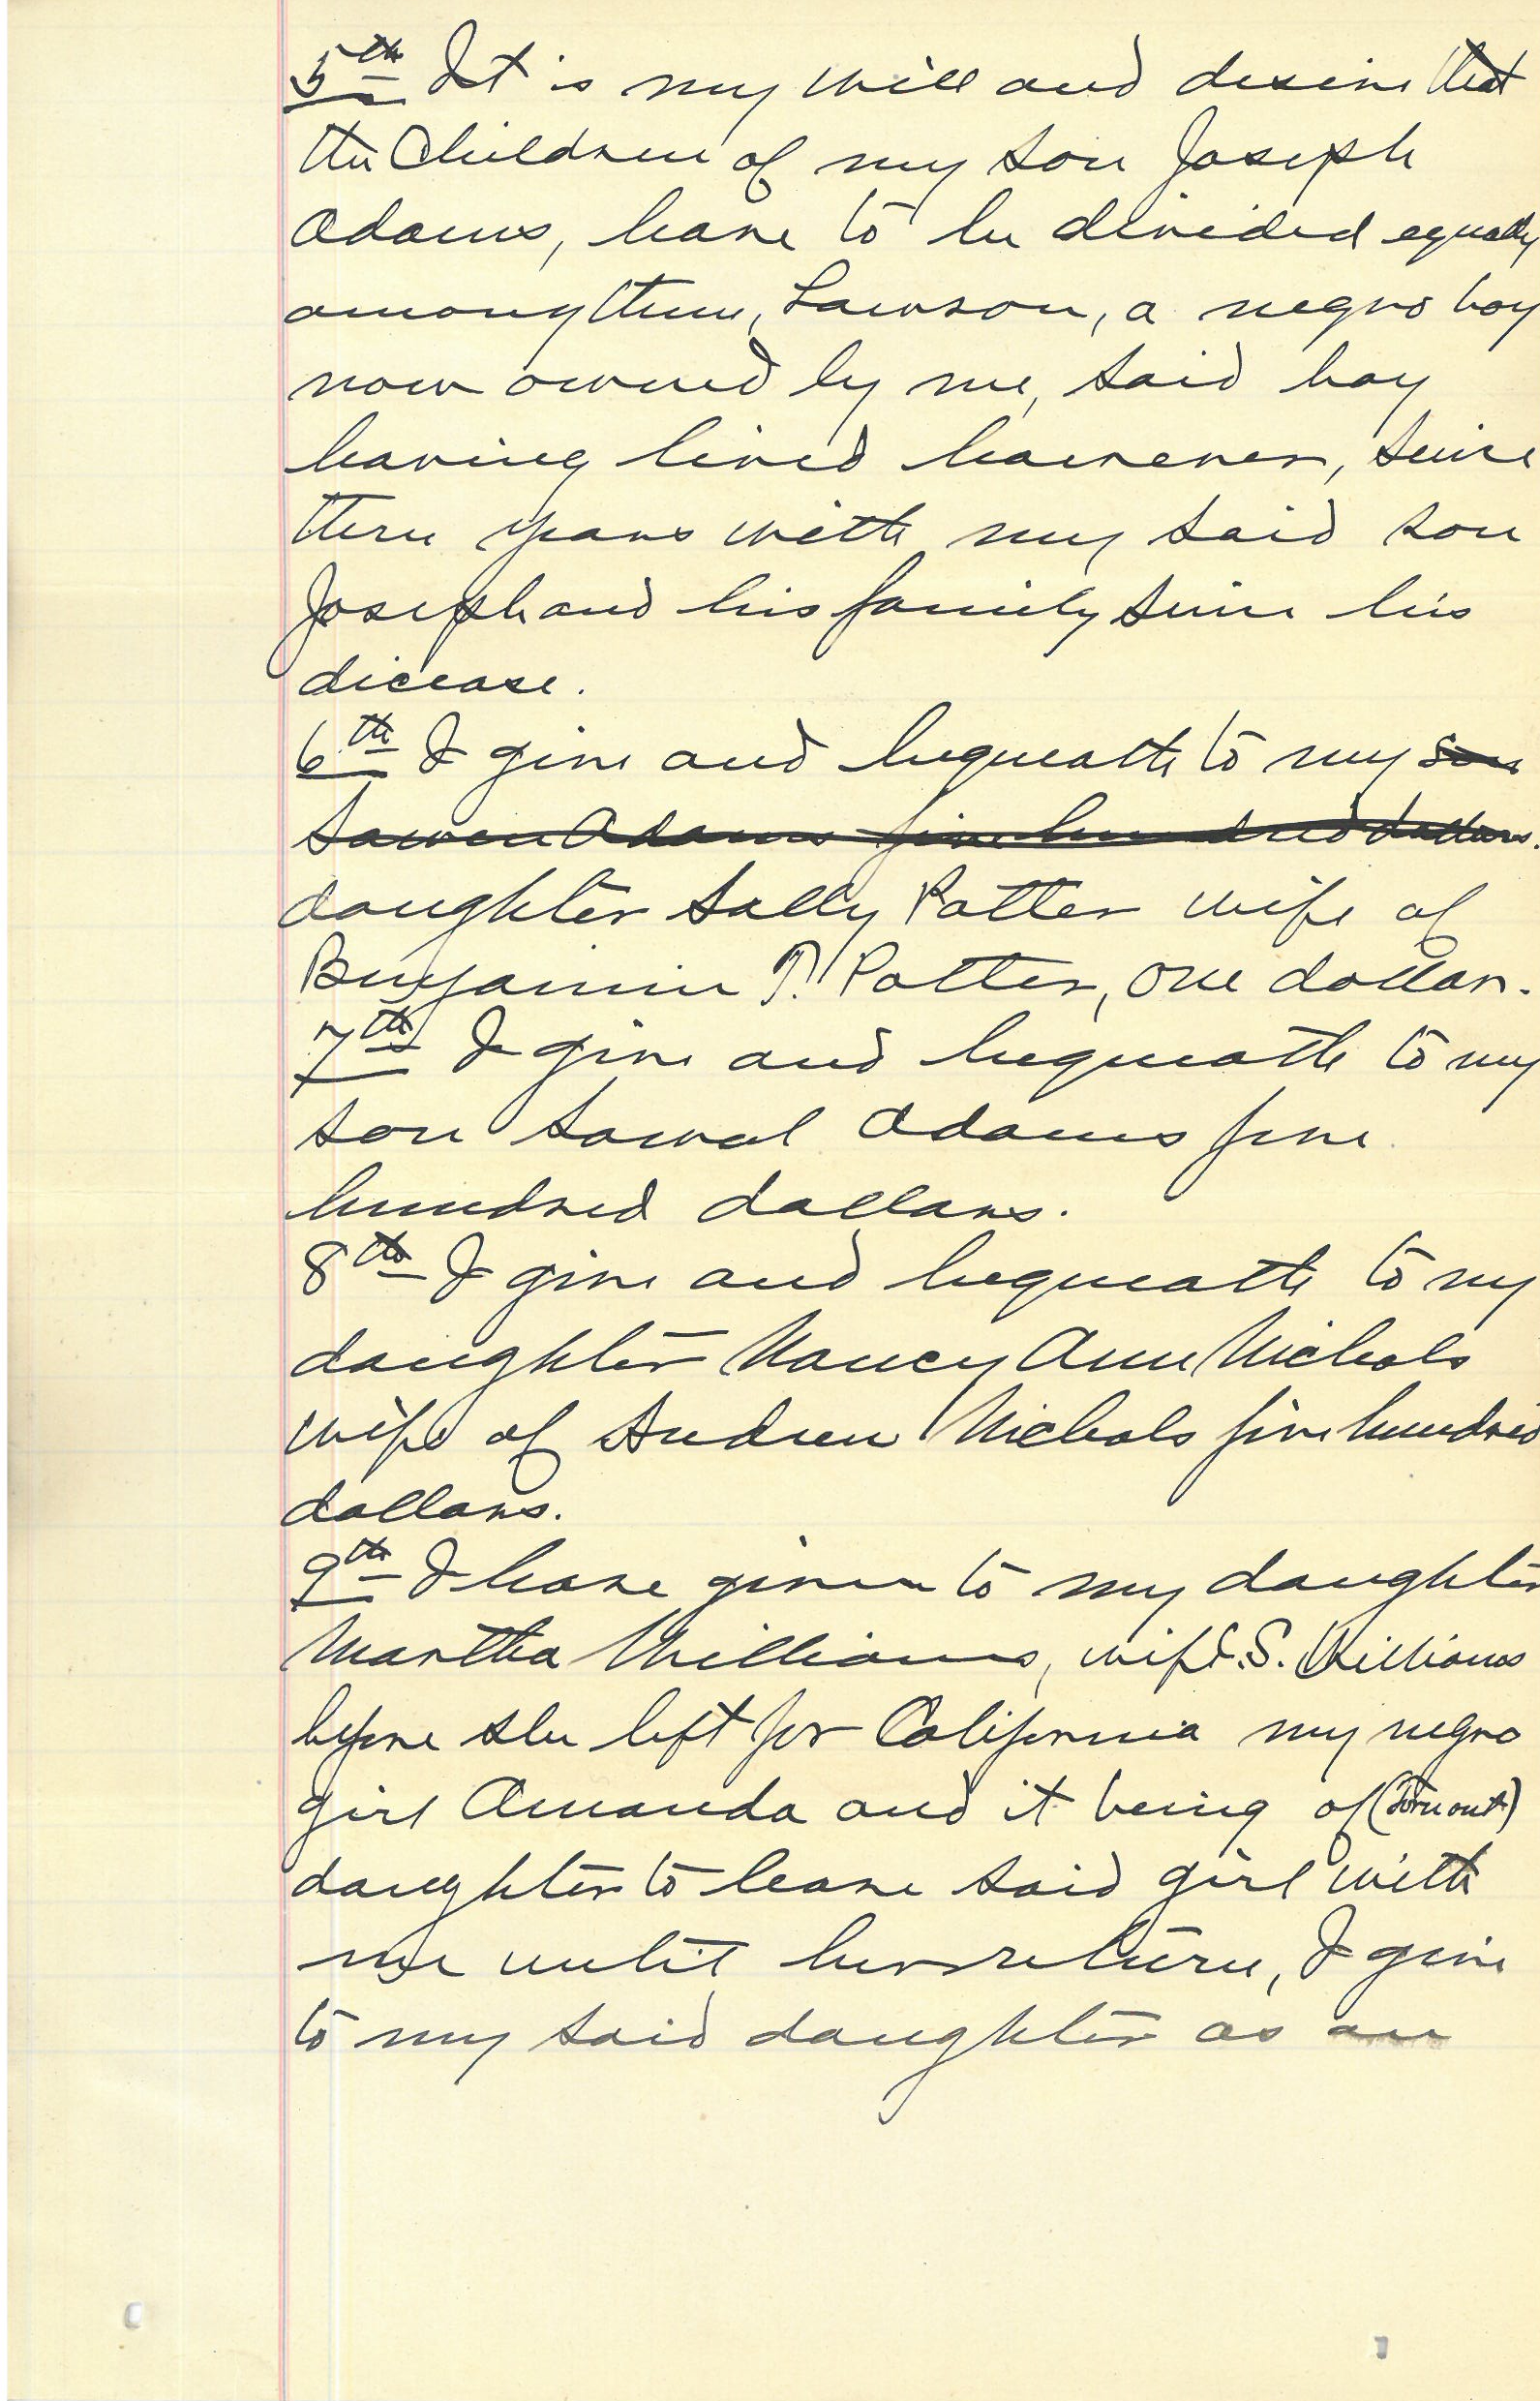 5th It is my will and desire that
the Children of my son Joseph
Adams, have to be divided equally
among them, Lawson, a negro boy
now owned by me, said boy
having lived however, since
there years with my said son
Joseph and his family since his
dicease.
6th I give and bequeath to my son
Sawen Adams five hundred dollars.
daughter Sally Potter wife of
Benjamin T. Potter, one dollar.
7th I give and bequeath to my
son Sawal Adams five
hundred dollars.
8th I give and bequeath to my
daughter Nancy Ann Nichols
wife of Andrew Nichols five hundred
dollars.
9th I have given to my daughter
Martha Williams, wife S. Williams
before she left for California my negro
girl Amanda and it being of (Torn out)
daughter to leave said girl with
me until her return, I give
to my said daughter as an